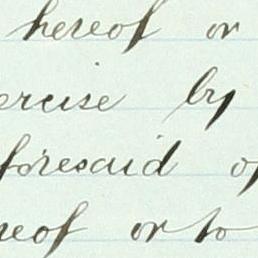 hereof or
ercise by
foresaid of
reof or to